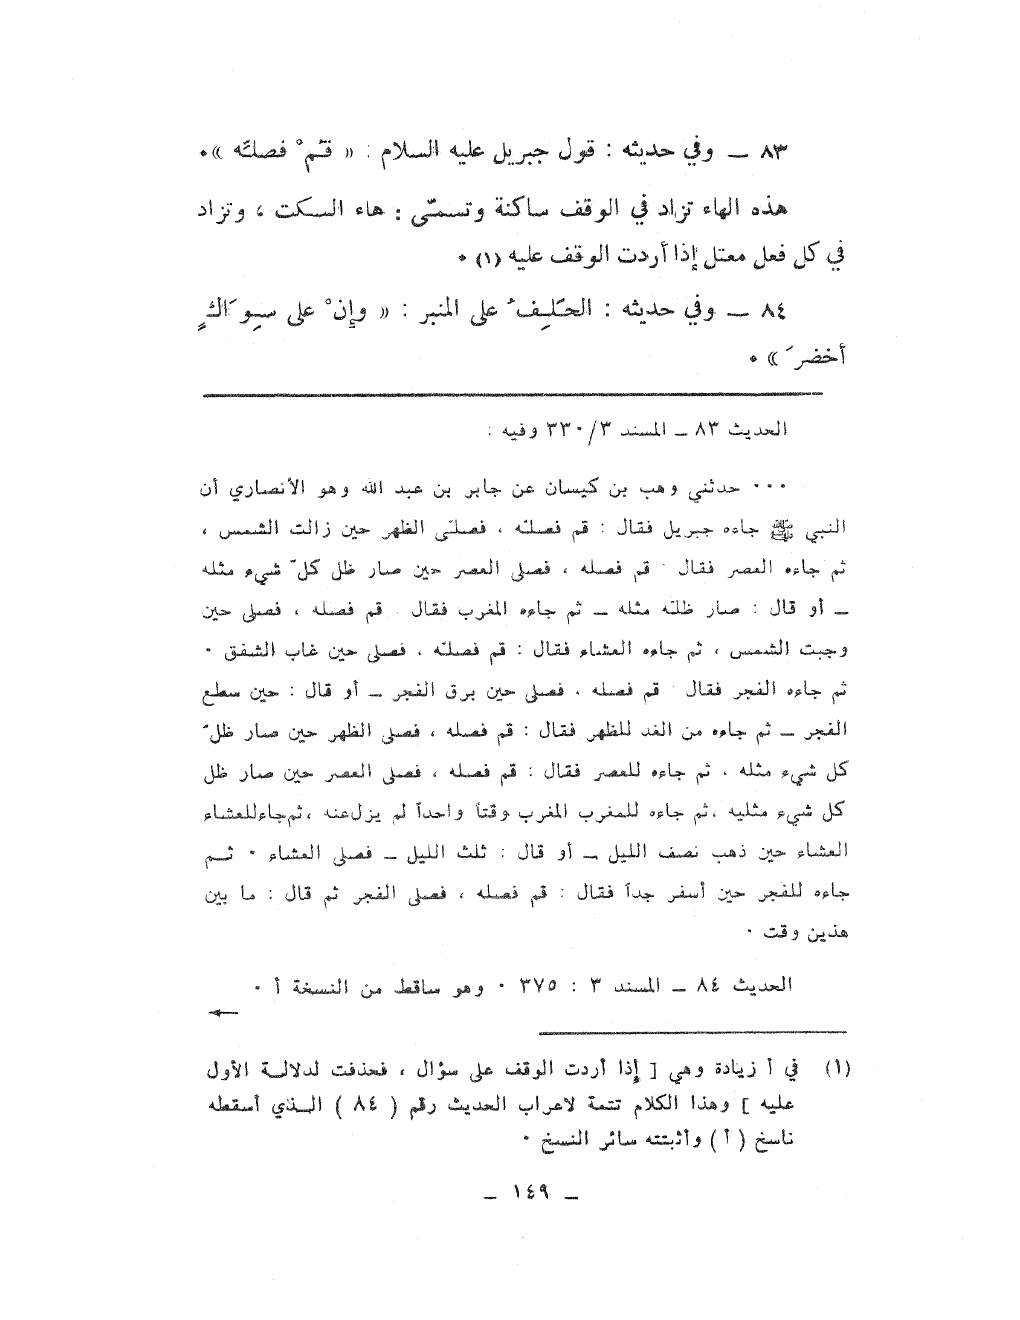 ٨٣ ــ وفي حديثه : قول جبريل عليه السلام : « قُمْ فصلِّه » ٠
هذه الهاء تزاد في الوقف ساكنة وتسمّى : هاء السكت ، وتزاد
في كل فعل معتل إذا أردت الوقف عليه (١) ٠
٨٤ ــ وفي حديثه : الحَلِفُ على المنبر : « وإِنْ على سِوَاكٍ
أخضرَ » ٠
الحديث ٨٣ ــ المسند ٣/ ٣٣٠ وفيه :
٠٠٠ حدثني وهب بن كيسان عن جابر بن عبد الله وهو الأنصاري أن
النبي ﷺ جاءه جبريل فقال : قم فصلّه ، فصلّى الظهر حين زالت الشمس ،
ثم جاءه العصر فقال قم فصله ، فصلى العصر حين صار ظل كلّ شيء مثله
ــ أو قال : صار ظلّه مثله ــ ثم جاءه المغرب فقال قم فصله ، فصلى حين
وجبت الشمس ، ثم جاءه العشاء فقال : قم فصلّه ، فصلى حين غاب الشفق ٠
ثم جاءه الفجر فقال قم فصله ، فصلى حين برق الفجر ــ أو قال : حين سطع
الفجر ــ ثم جاءه من الغد للظهر فقال : قم فصله ، فصلى الظهر حين صار ظلّ
كل شيء مثله ، ثم جاءه للعصر فقال : قم فصله ، فصلى العصر حين صار ظل
كل شيء مثليه ، ثم جاءه للمغرب المغرب وقتاً واحداً لم يزل عنه ، ثم جاء للعشاء
العشاء حين ذهب نصف الليل ــ أو قال : ثلث الليل ــ فصلى العشاء ٠ ثم
جاءه للفجر حين أسفر جداً فقال : قم فصله ، فصلى الفجر ثم قال : ما بين
هذين وقت ٠
الحديث ٨٤ ــ المسند ٣ : ٣٧٥ ٠ وهو ساقط من النسخة أ ٠
←
(١) في أ زيادة وهي [ إذا أردت الوقف على سؤال ، فحذفت لدلالة الأول
عليه ] وهذا الكلام تتمة لاعراب الحديث رقم ( ٨٤ ) الذي أسقطه
ناسخ ( أ ) وأثبتته سائر النسخ ٠
ــ ١٤٩ ــ